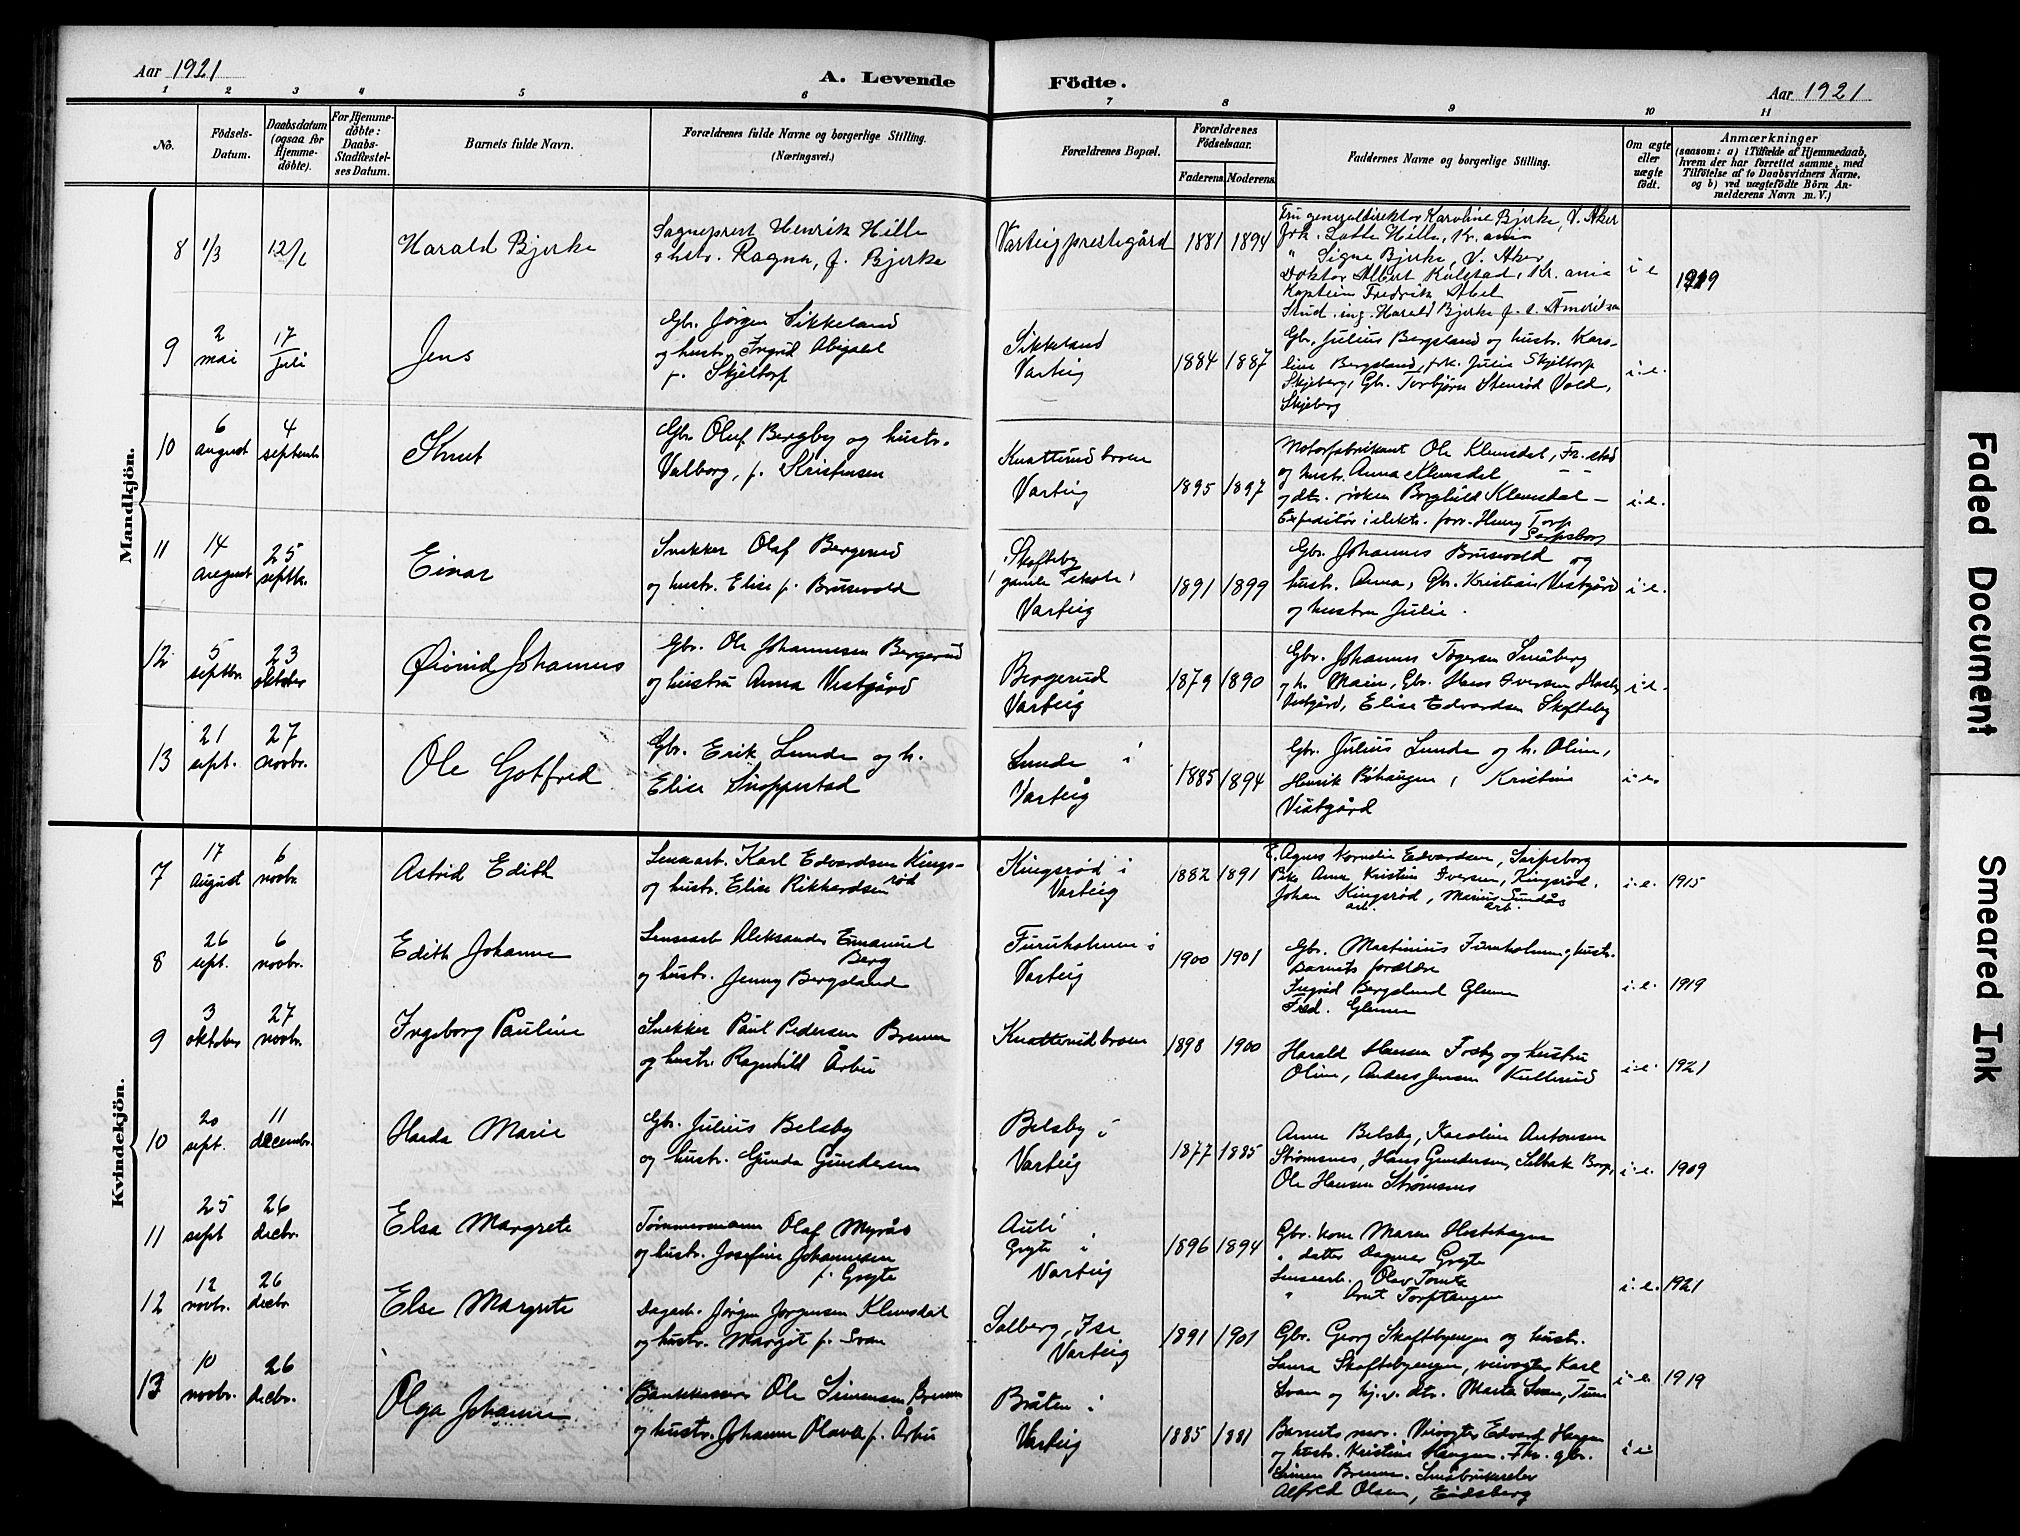 Aar 1921
A. Levende
Födte.
Aar 1921
1 2 3 4 5 6 7 8 9 10 11
Nô.
Födsels-
Datum.
Daabsdatum
(ogsaa for
Hjemme-
döbte).
For Hjemme-
döbte:
Daabs-
Stadfæstel-
ses Datum.
Barnets fulde Navn.
Forældrenes fulde Navne og borgerlige Stilling.
(Næringsvei.)
Forældrenes Bopæl.
Forældrenes
Födselsaar.
Faderens Moderens
Faddernes Navne og borgerlige Stilling.
Om ægte
eller
uægte
födt.
Anmærkninger
(saasom: a) i Tilfælde af Hjemmedaab,
hvem der har forrettet samme, med
Tilföielse af to Daabsvidners Navne.
og b) ved uægtefödte Börn An-
melderens Navn m. V.)
Mandkjön.
8 1/3
Harald Bjerke
Sogneprest Henrik Hille
o hstr. Ragna, f. Bjerke
Varteig prestegård
1881 1894
Fru generaldirektor Karoline Bjerke, V. Aker
Frk. Lotte Hille, Kr.ania
" Signe Bjerke, V. Aker
Doktor Albert Kulstad, Kr.ania
Kaptein Fredrik Abel
Stud. ing. Harald Bjerke
i e
9
2
mai
17
juli
Jens
Gbr. Jørgen Sikkeland
og hustr. Ingrid Abigael
f. Skjeltorp
Sikkeland
Varteig
1884 1887
Gbr. Julius Bergsland og hustr. Karo-
line Bergsland, frk. Julie Skjeltorp
Skjeberg, Gbr. Torbjørn Stenrød Vold,
Skjeberg
i.e.
10
6
august
4
septembr
Knut
Gbr. Oluf Bergby og hustr.
Valborg, f. Kristensen
Knatterudbroen
Varteig
1895 1897
Motorfabrikant Ole Klemsdal, Fr.stad
og hustr. Anna Klemsdal
og dtr. frøken Borghild Klemsdal —
Expeditør i elektr. forr. Henry Torp
Sarpsborg
i.e.
11
14
august
25
septbr.
Einar
Snekker Olaf Bergerud
og hustr. Elise f. Brusevold
Skofteby
gamle skole
Varteig
1891 1899
Gbr. Johannes Brusevold og
hustr. Anna, Gbr. Kristian Vestgård
og hustru Julie.
i.e.
12
5
septbr.
23
oktober
Øivind Johannes
Gbr. Ole Johannesen Bergerud
og hustru Anna Vestgård
Bergerud
Varteig
1879 1890
Gbr. Johannes Togersen Småberg
og h. Maien, Gbr. Hans Iversen
Vestgård, Elise Edvardsen Skofteby
i.e.
13
21
sept.
27
novbr.
Ole Gotfred
Gbr. Erik Lunde og h.
Elise Snoppestad
Lunde i
Varteig
1885 1894
Gbr. Julius Lunde og h. Oline,
Henrik Bøhaugen, Kristine
Vestgård
i.e.
Kvindekjön.
7
17
August
6
novbr.
Astrid Edith
Lensearb. Karl Edvardsen Kings-
rød
og hustr. Elise Rikkardsen
Kingsrød i
Varteig
1882 1891
E. Agnes Kornelie Edvardsen, Sarpsborg
Pike Anne Kristine Iversen, Kingsrød.
Johan Kingsrød, Marius Sundås
arb. arb.
i.e. 1915
8
26
sept.
6
novbr.
Edith Johanne
Lensearb Aleksander Emanuel
Berg
og hustr. Jenny Bergsland
Furuholmen i
Varteig
1900 1901
Gbr. Martinius Furuholmen og hustr.
Barnets forældre
Ingrid Bergslund Glemmen
Fred. Glemmen
i.e. 1919
9
3
oktober
27
novbr.
Ingeborg Pauline
Snekker Paul Pedersen Brenne
og hustr. Ragnhild Årbu
Knatterudbroen
1898 1900
Harald Hansen Fosby og hustru
Oline, Anders Jensen Kullerud
i.e. 1921
10
20
sept.
11
decembr.
Harda Marie
Gbr. Julius Belsby
og hustr. Gunda Gundersen
Belsby i
Varteig
1877 1885
Anne Belsby, Karoline Antonsen
Strømsnes, Hans Gundersen, Selbak Borge,
Ole Hansen Strømsnes
i.e. 1909
11
25
sept
26
decbr.
Elsa Margrete
Tømmermann Olaf Myrås
og hustr. Josefine Johannesen
f. Gryte
Auli
Gryte i
Varteig
1896 1894
Gbr. kone Maren
" datter Dagmar Gryte
Lensearb. Olav Tomta
" Arnt Torptangen
i.e. 1921
12
12
novbr.
26
decbr.
Else Margrete
Dagarb. Jørgen Jørgensen Klemsdal
og hustr. Margit f. Svan
Solberg, Ise
Varteig
1891 1901
Gbr. Georg Skoftebyengen og hustr.
Laura Skoftebyengen, veivogter Karl
Svan og hj.v. dtr. Marta Svan, Tune
i.e. 1919
13
10
novbr.
26
decbr.
Olga Johanne
Bankkasserer Ole Simensen Brenne
og hustr. Johanne Olava f. Årbu
Bråten i
Varteig
1885 1881
Barnets mor. Veivogter Edvard Haugen
og hustr. Kristine Haugen. Fhv. gbr.
Simen Brenne. Småbruker
Alfred Olsen, Eidsberg
Faded Document
Smeared Ink